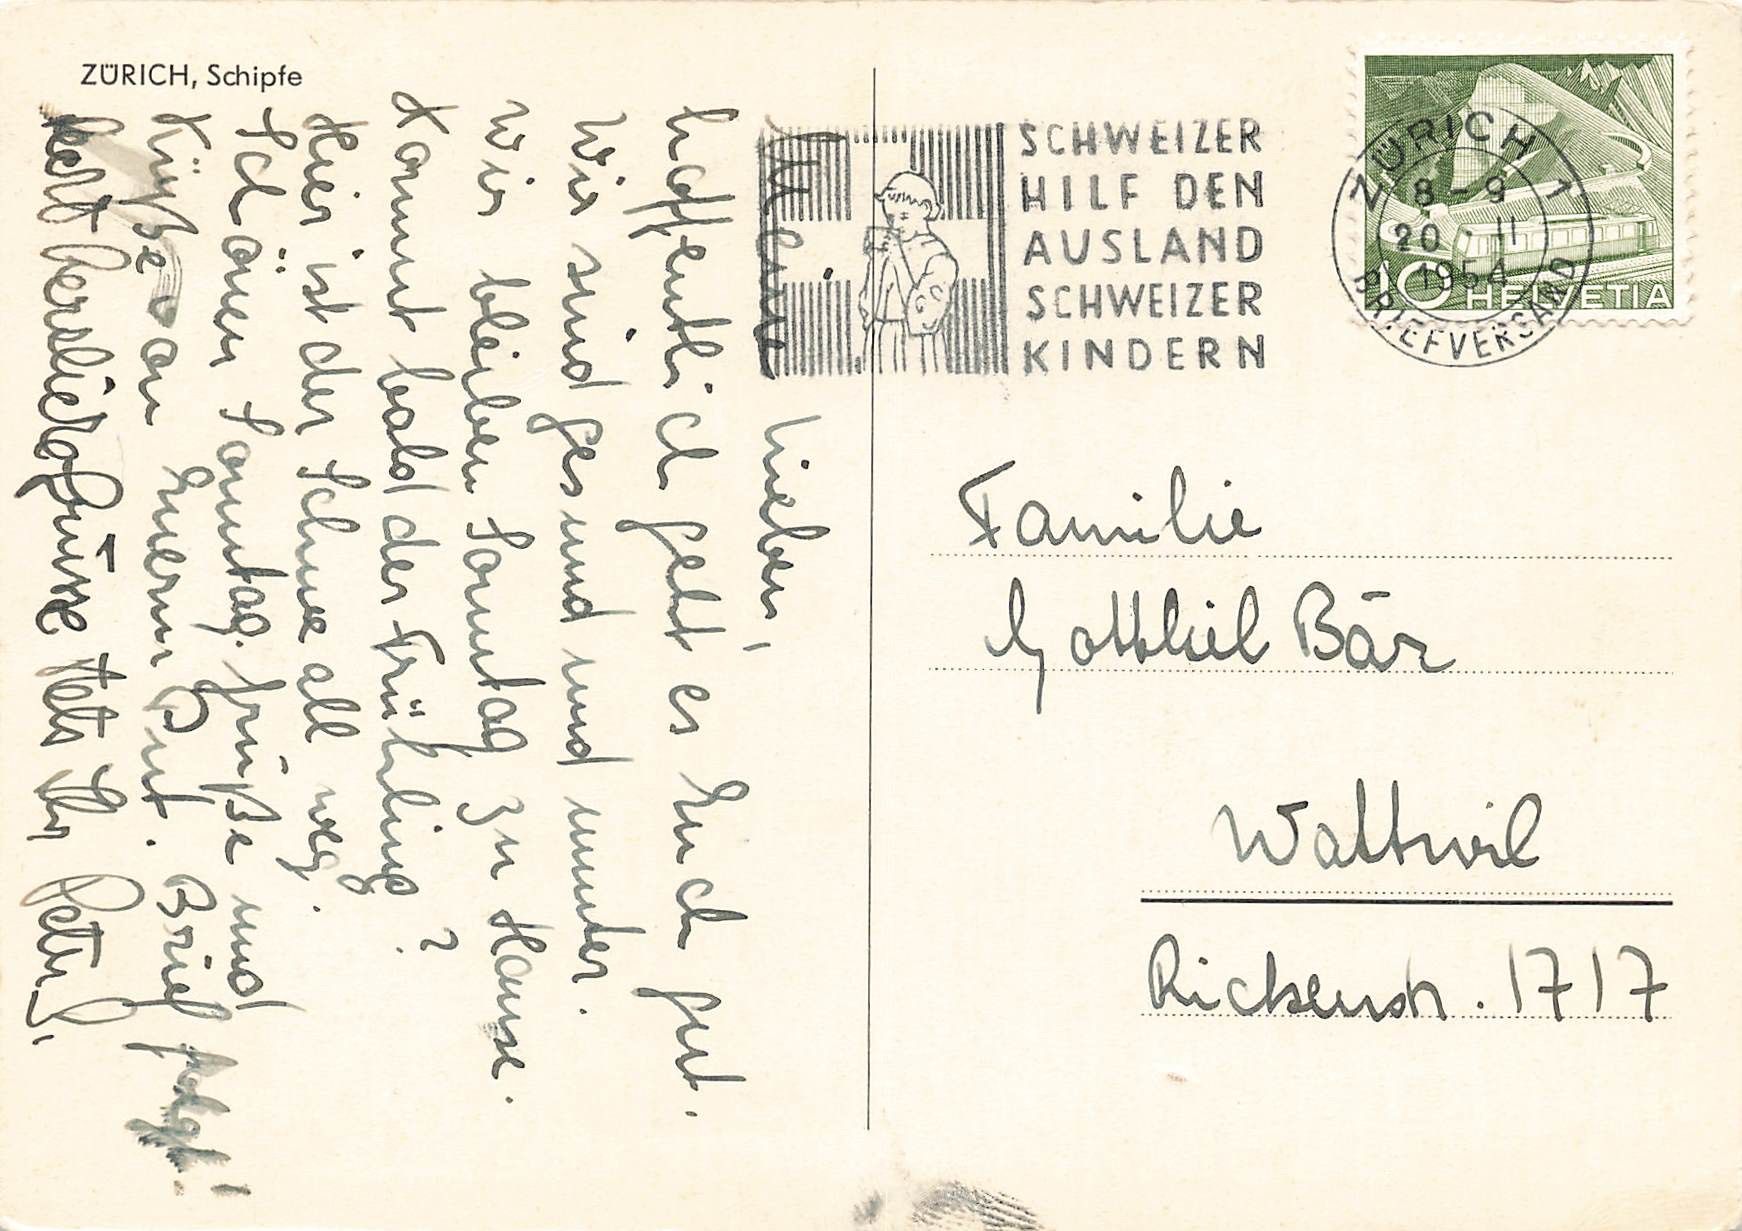 ZÜRICH, Schipfe
Meine Lieben,
hoffentlich geht es Euch gut.
Wir sind gesund und munter.
Wir bleiben Sonntag zu Hause.
Kommt bald der Frühling?
Hier ist der Schnee all weg.
Schönen Sonntag. Grüße und
Küße von Euerm Prut. Brief folgt!
herzliche Grüsse
SCHWEIZER
HILF DEN
AUSLAND
SCHWEIZER
KINDERN
ZÜRICH 1
8-9
20 · II
1954
BRIEFVERSAND
10 HELVETIA
Familie
Gottlieb Bär
Wattwil
Rickenstr. 1717